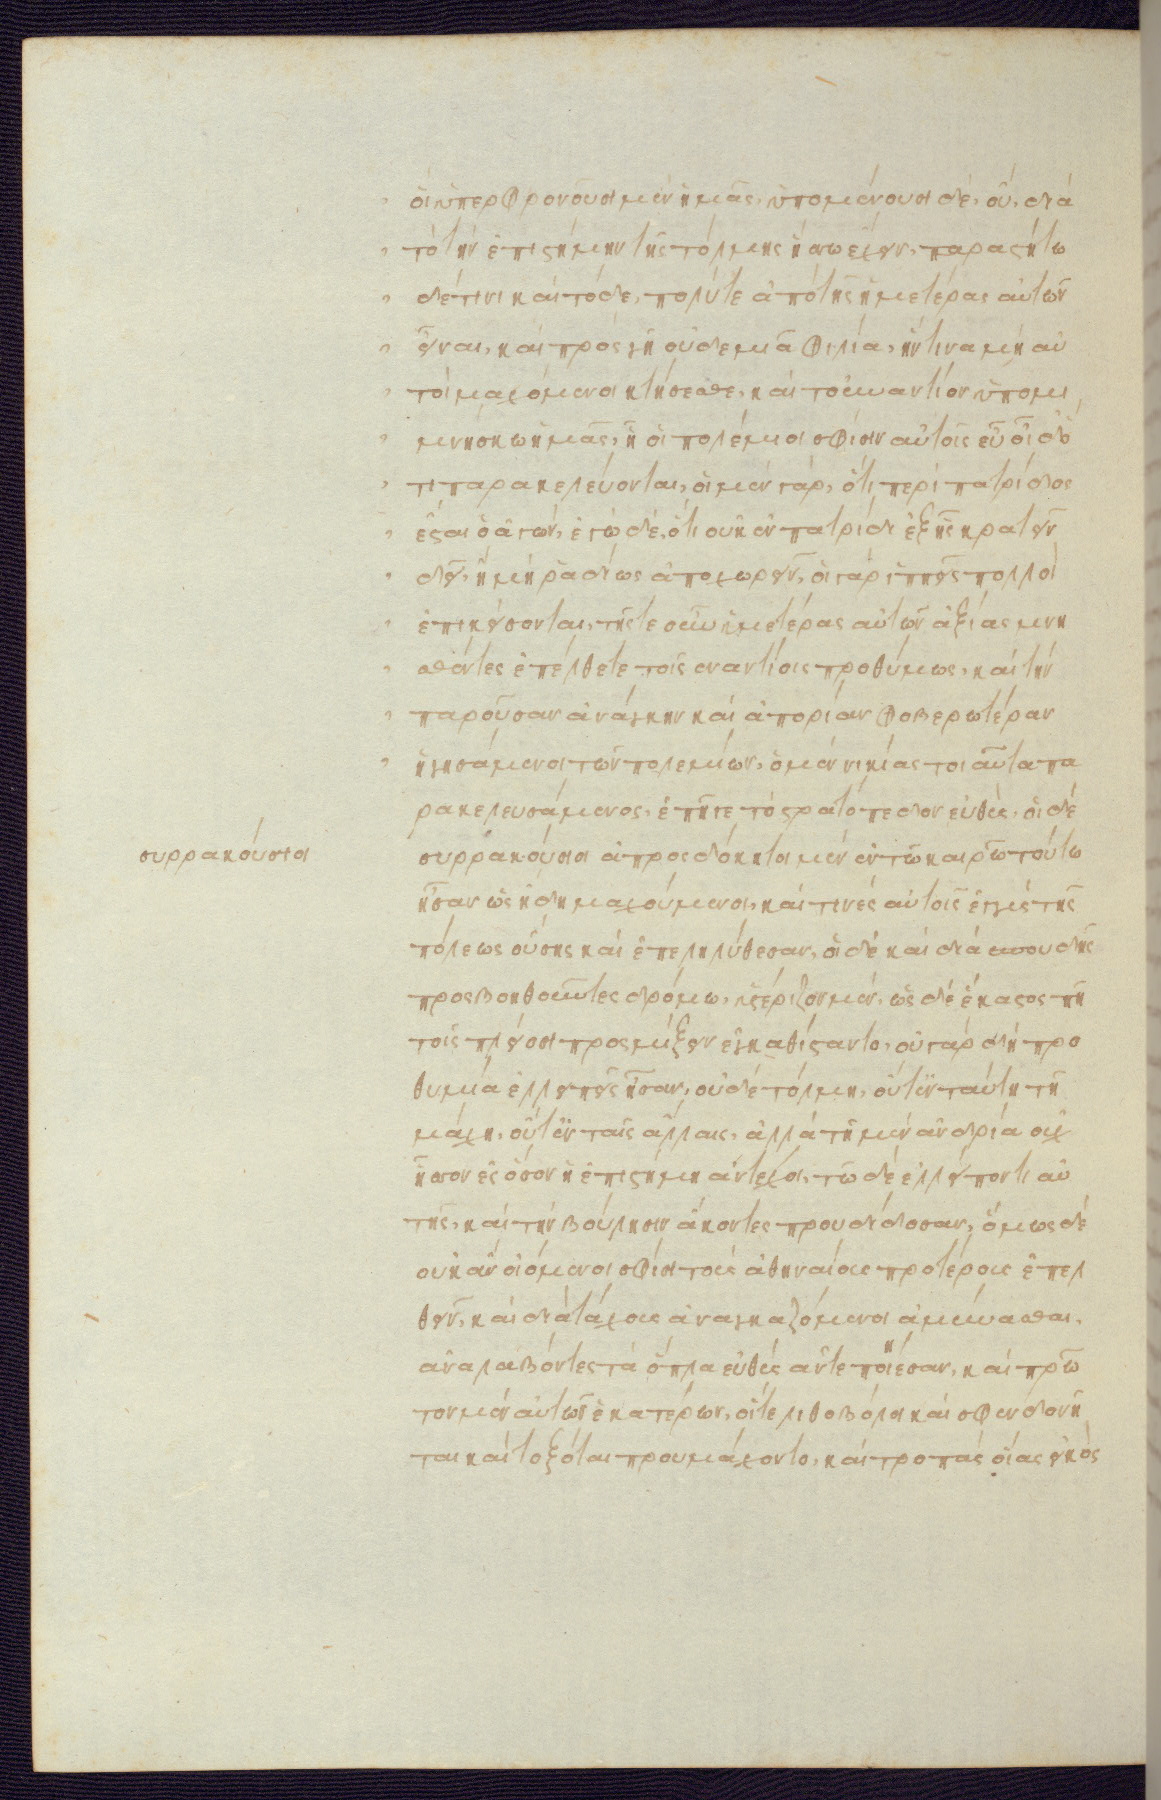 οἱ ὑπερφρονοῦσι μὲν ἡμᾶς, ὑπομένουσι δὲ, οὔ, διὰ
τὸ τὴν ἐπιστήμην τῆς τόλμης ἥσσω ἔχειν, παραστήτω
δέ τινι καὶ τόδε, πολύ τε ἀπὸ τῆς ἡμετέρας αὐτῶν
εἶναι, καὶ πρὸς γῆ οὐδεμιᾶ φιλία, ἥντινα μὴ αὐ
τοὶ μαχόμενοι κτήσεσθε, καὶ τοὐναντίον ὑπομι
μνήσκω ἡμᾶς, ἢ οἱ πολέμιοι σφίσιν αὐτοῖς εὖ οἶδ᾽ ὅ
τι παρακελεύονται, οἱ μὲν γὰρ, ὅτι περὶ πατρίδος
ἔσται ὁ ἀγών, ἐγὼ δὲ, ὅτι οὐκ ἐν πατρίδι ἐξ ἧς κρατεῖν
δεῖ, ἢ μὴ ῥαδίως ἀποχωρεῖν, οἱ γὰρ ἱππεῖς πολλοὶ
ἐπικείσονται, τῆς τε οὖν ὑμετέρας αὐτῶν ἀξίας μνη
σθέντες ἐπέλθετε τοῖς ἐναντίοις προθύμως, καὶ τὴν
παροῦσαν ἀνάγκην καὶ ἀπορίαν φοβερωτέραν
ἡγησάμενοι τῶν πολεμίων, ὁ μὲν νικίας τοιαῦτα πα
ρακελευσάμενος, ἐπῆγε τὸ στρατόπεδον εὐθὺς, οἱ δὲ
συρρακούσιοι
συρρακούσιοι ἀπροσδόκητοι μὲν ἐν τῶ καιρῶ τούτω
ἦσαν ὡς ἤδη μαχούμενοι, καί τινες αὐτοῖς ἐγγὺς τῆς
πόλεως οὔσης καὶ ἐπεληλύθεσαν, οἱ δὲ καὶ διὰ σπουδῆς
προσβοηθοῦντες δρόμω, ὑστέριζον μὲν, ὡς δὲ ἕκαστος πη
τοῖς πλείοσι προσμίξειεν ἐγκαθίσταντο, οὐ γὰρ δὴ προ
θυμία ἐλλιπεῖς ἦσαν, οὐδὲ τόλμη, οὔτ᾽ ἐν ταύτη τῆ
μάχη, οὔτ᾽ ἐν ταῖς ἄλλαις, ἀλλὰ τῆ μὲν ἀνδρία οὐχ
ἥσσους ἐς ὅσον ἡ ἐπιστήμη ἀντέχοι, τῶ δὲ ἐλλείποντι αὐ
τῆς, καὶ τὴν βούλησιν ἄκοντες προυδίδοσαν, ὅμως δὲ
οὐκ ἂν οἰόμενοι σφίσι τοὺς ἀθηναίους προτέρους ἐπελ
θεῖν, καὶ διὰ τάχους ἀναγκαζόμενοι ἀμύνασθαι,
ἀναλαβόντες τὰ ὅπλα εὐθὺς ἀντεπήεσαν, καὶ πρῶ
τον μὲν αὐτῶν ἑκατέρων, οἵτε λιθοβόλοι καὶ σφενδονῆ
ται καὶ τοξόται προυμάχοντο, καὶ τροπὰς οἵας εἰκὸς